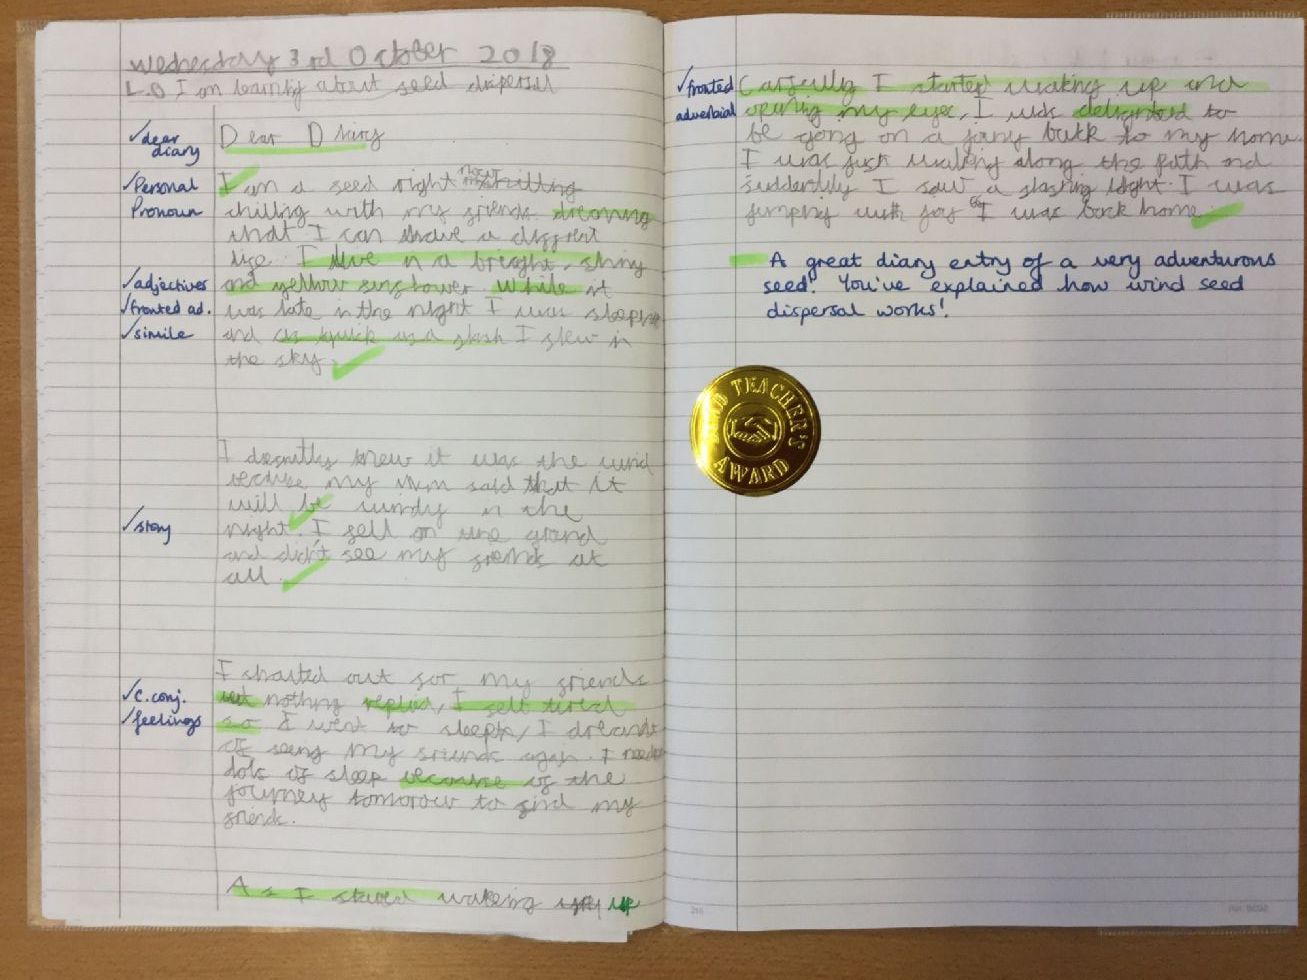 Wednesday 3rd October 2018
L.O I am learning about seed dispersal
✓dear
diary
Dear Diary
✓Personal
Pronoun
I am a seed right now
chilling with my friends dreaming
that I can have a different
life. I live in a breight, shiny
✓adjectives
and yellow sunflower. While it
✓fronted ad.
was late in the night I was sleeping
✓simile
and as quick as a flash I flew in
the sky.
I knew it was the wind
because my Mum said that it
will be windy in the
✓story
night. I fell on the grand
and didn't see my freinds at
all.
I shouted out for my friends
✓c.conj.
but nothing replied, I felt tired
✓feelings
so I went to sleep, I dreamt
of seeing my friends again. I need
lots of sleep because of the
journey tomorrow to find my
friends.
As I stared wakeing up
✓fronted
adverbial
Carfully I started waking up and
opening my eyes, I was delighted to
be going on a jorny back to my home.
I was just walking along the path and
suddenly I saw a flashing light. I was
jumping with joy "I was back home.
A great diary entry of a very adventurous
seed! You've explained how wind seed
dispersal works!
HEAD TEACHER'S
AWARD